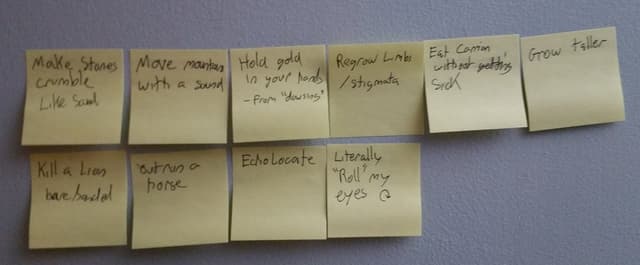 Make Stones
crumble
Like Sand
Move mountains
with a sound
Hold gold
in your hands
- From "dowsing"
Regrow Limbs
/stigmata
Eat Carrion
without getting
sick
Grow taller
Kill a Lion
bare handed
outrun a
horse
Echo Locate
Literally
"Roll" my
eyes